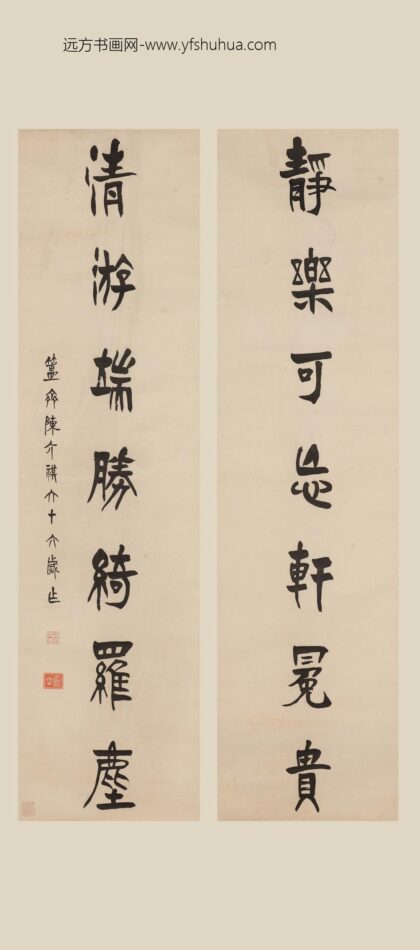 远方书画网-www.yfshuhua.com
靜樂可忘軒冕貴
清游端勝綺羅塵
簠齋陳介祺六十六歲作